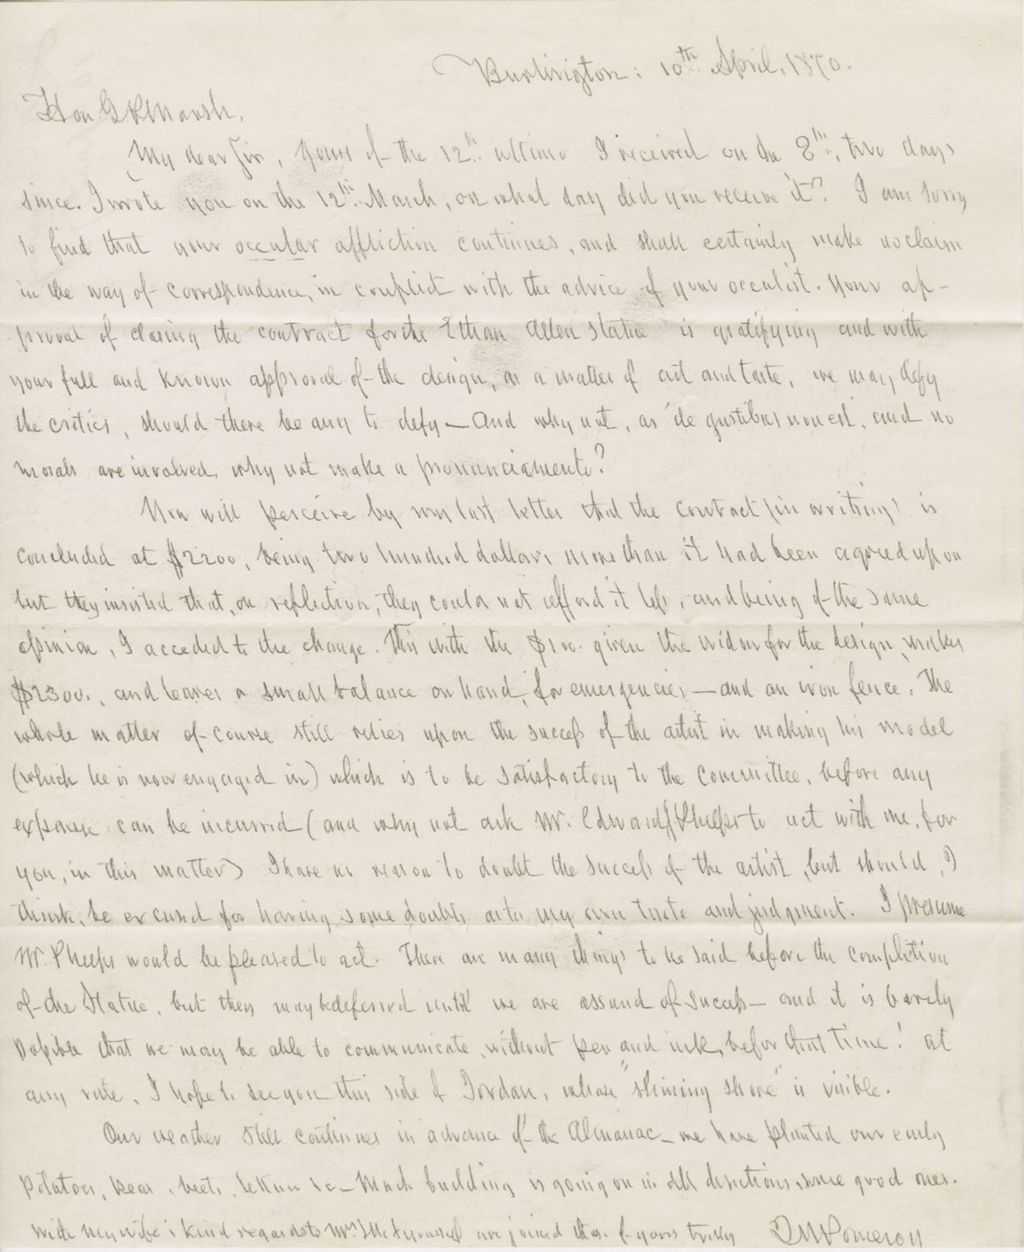 Burlington: 10th April, 1870.
Hon G P Marsh,
My dear Sir, Yours of the 12th ultimo I received on the 8th, two days
since. I wrote you on the 12th March, on what day did you receive it? I am sorry
to find that your occular affliction continues, and shall certainly make no claim
in the way of correspondence, in conflict with the advice of your occulist. Your ap-
proval of closing the contract for the Ethan Allen Statue is gratifying and with
your full and known approval of the design, as a matter of art and taste, we may defy
the critics, should there be any to defy — And why not, as 'de gustibus non est', and no
morals are involved, why not make a pronunciamento?
You will perceive by my last letter that the contract (in writing) is
concluded at $2200, being two hundred dollars more than it had been agreed upon
but they insisted that, on reflection, they could not afford it less, and being of the same
opinion, I acceded to the change. This with the $100. given the widow for the design, makes
$2300., and leaves a small balance on hand, for emergencies — and an iron fence. The
whole matter of course still relies upon the success of the artist in making his model
(which he is now engaged in) which is to be satisfactory to the committee, before any
expense can be incurred (and why not ask Mr. Edward J Phelps to act with me, for
you, in this matter) I have no reason to doubt the success of the artist, but should, I
think, be excused for having some doubts as to my own taste and judgment. I presume
Mr. Phelps would be pleased to act. There are many things to be said before the completion
of the Statue, but they may be deferred until we are assured of success — and it is barely
possible that we may be able to communicate, without pen and ink, before that time! at
any rate, I hope to see you this side of Jordan, whose "shining shore" is visible.
Our weather still continues in advance of the Almanac — we have planted our early
Potatoes, peas, beets, lettuce &c — Much building is going on in all directions, some good ones.
With my wife's kind regards to Mrs. M & yourself are joined those of yours truly